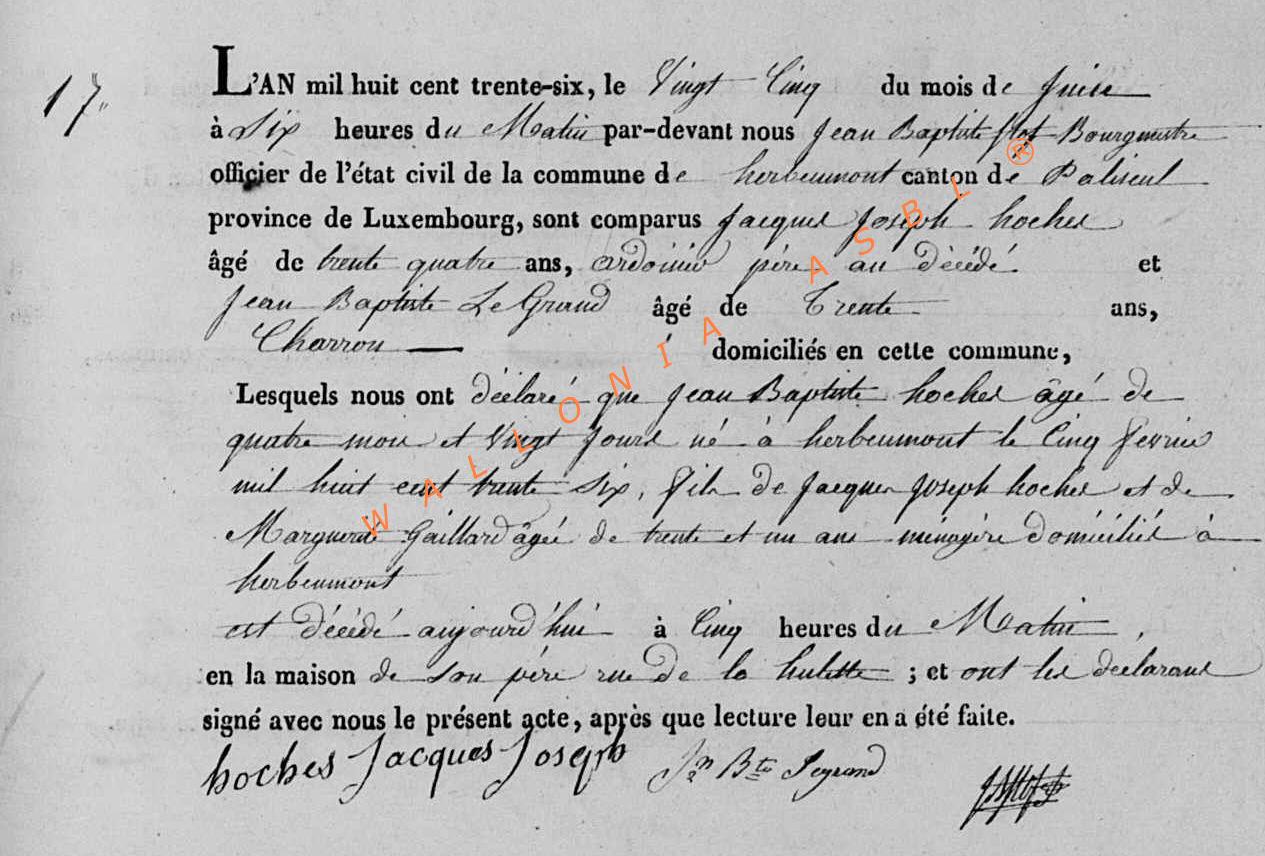 17
L'AN mil huit cent trente-six, le Vingt Cinq du mois de Juin
à Six heures du Matin par-devant nous Jean Baptiste Bourgmestre
officier de l'état civil de la commune de herbeumont canton de Paliseul
province de Luxembourg, sont comparus Jacques Joseph hoches
âgé de trente quatre ans, ardoisier père au décédé et
Jean Baptiste Le Grand âgé de Trente ans,
Charron domiciliés en cette commune,
Lesquels nous ont déclaré que Jean Baptiste hoches âgé de
quatre mois et Vingt Jours né à herbeumont le Cinq fevrier
mil huit cent trente Six, fils de Jacques Joseph hoches et de
Marguerite Gaillard âgée de trente et un ans ménagère domiciliés à
herbeumont
est décédé aujourd'hui à Cinq heures du Matin,
en la maison de son père rue de la hulette ; et ont les declarans
signé avec nous le présent acte, après que lecture leur en a été faite.
hoches Jacques Joseph Jn Bte Legrand
WALLONIA ASBL ®